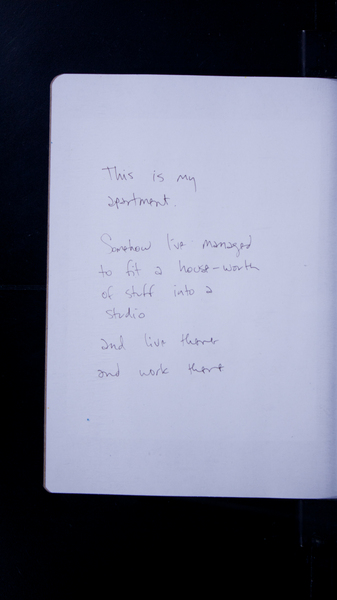 This is my
apartment.
Somehow I've managed
to fit a house-worth
of stuff into a
studio
and live there
and work there